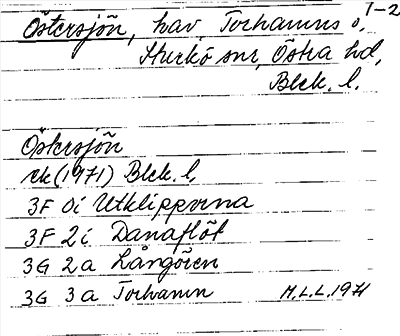 1-2
Östersjön, hav, Torhamns o,
Sturkö snr, Östra hd,
Blek. l.
Östersjön
ek (1971) Blek. l.
3F 0i Utklipporna
3F 2i Danaflöt
3G 2a Långören
3G 3a Torhamn M.L.L. 1971